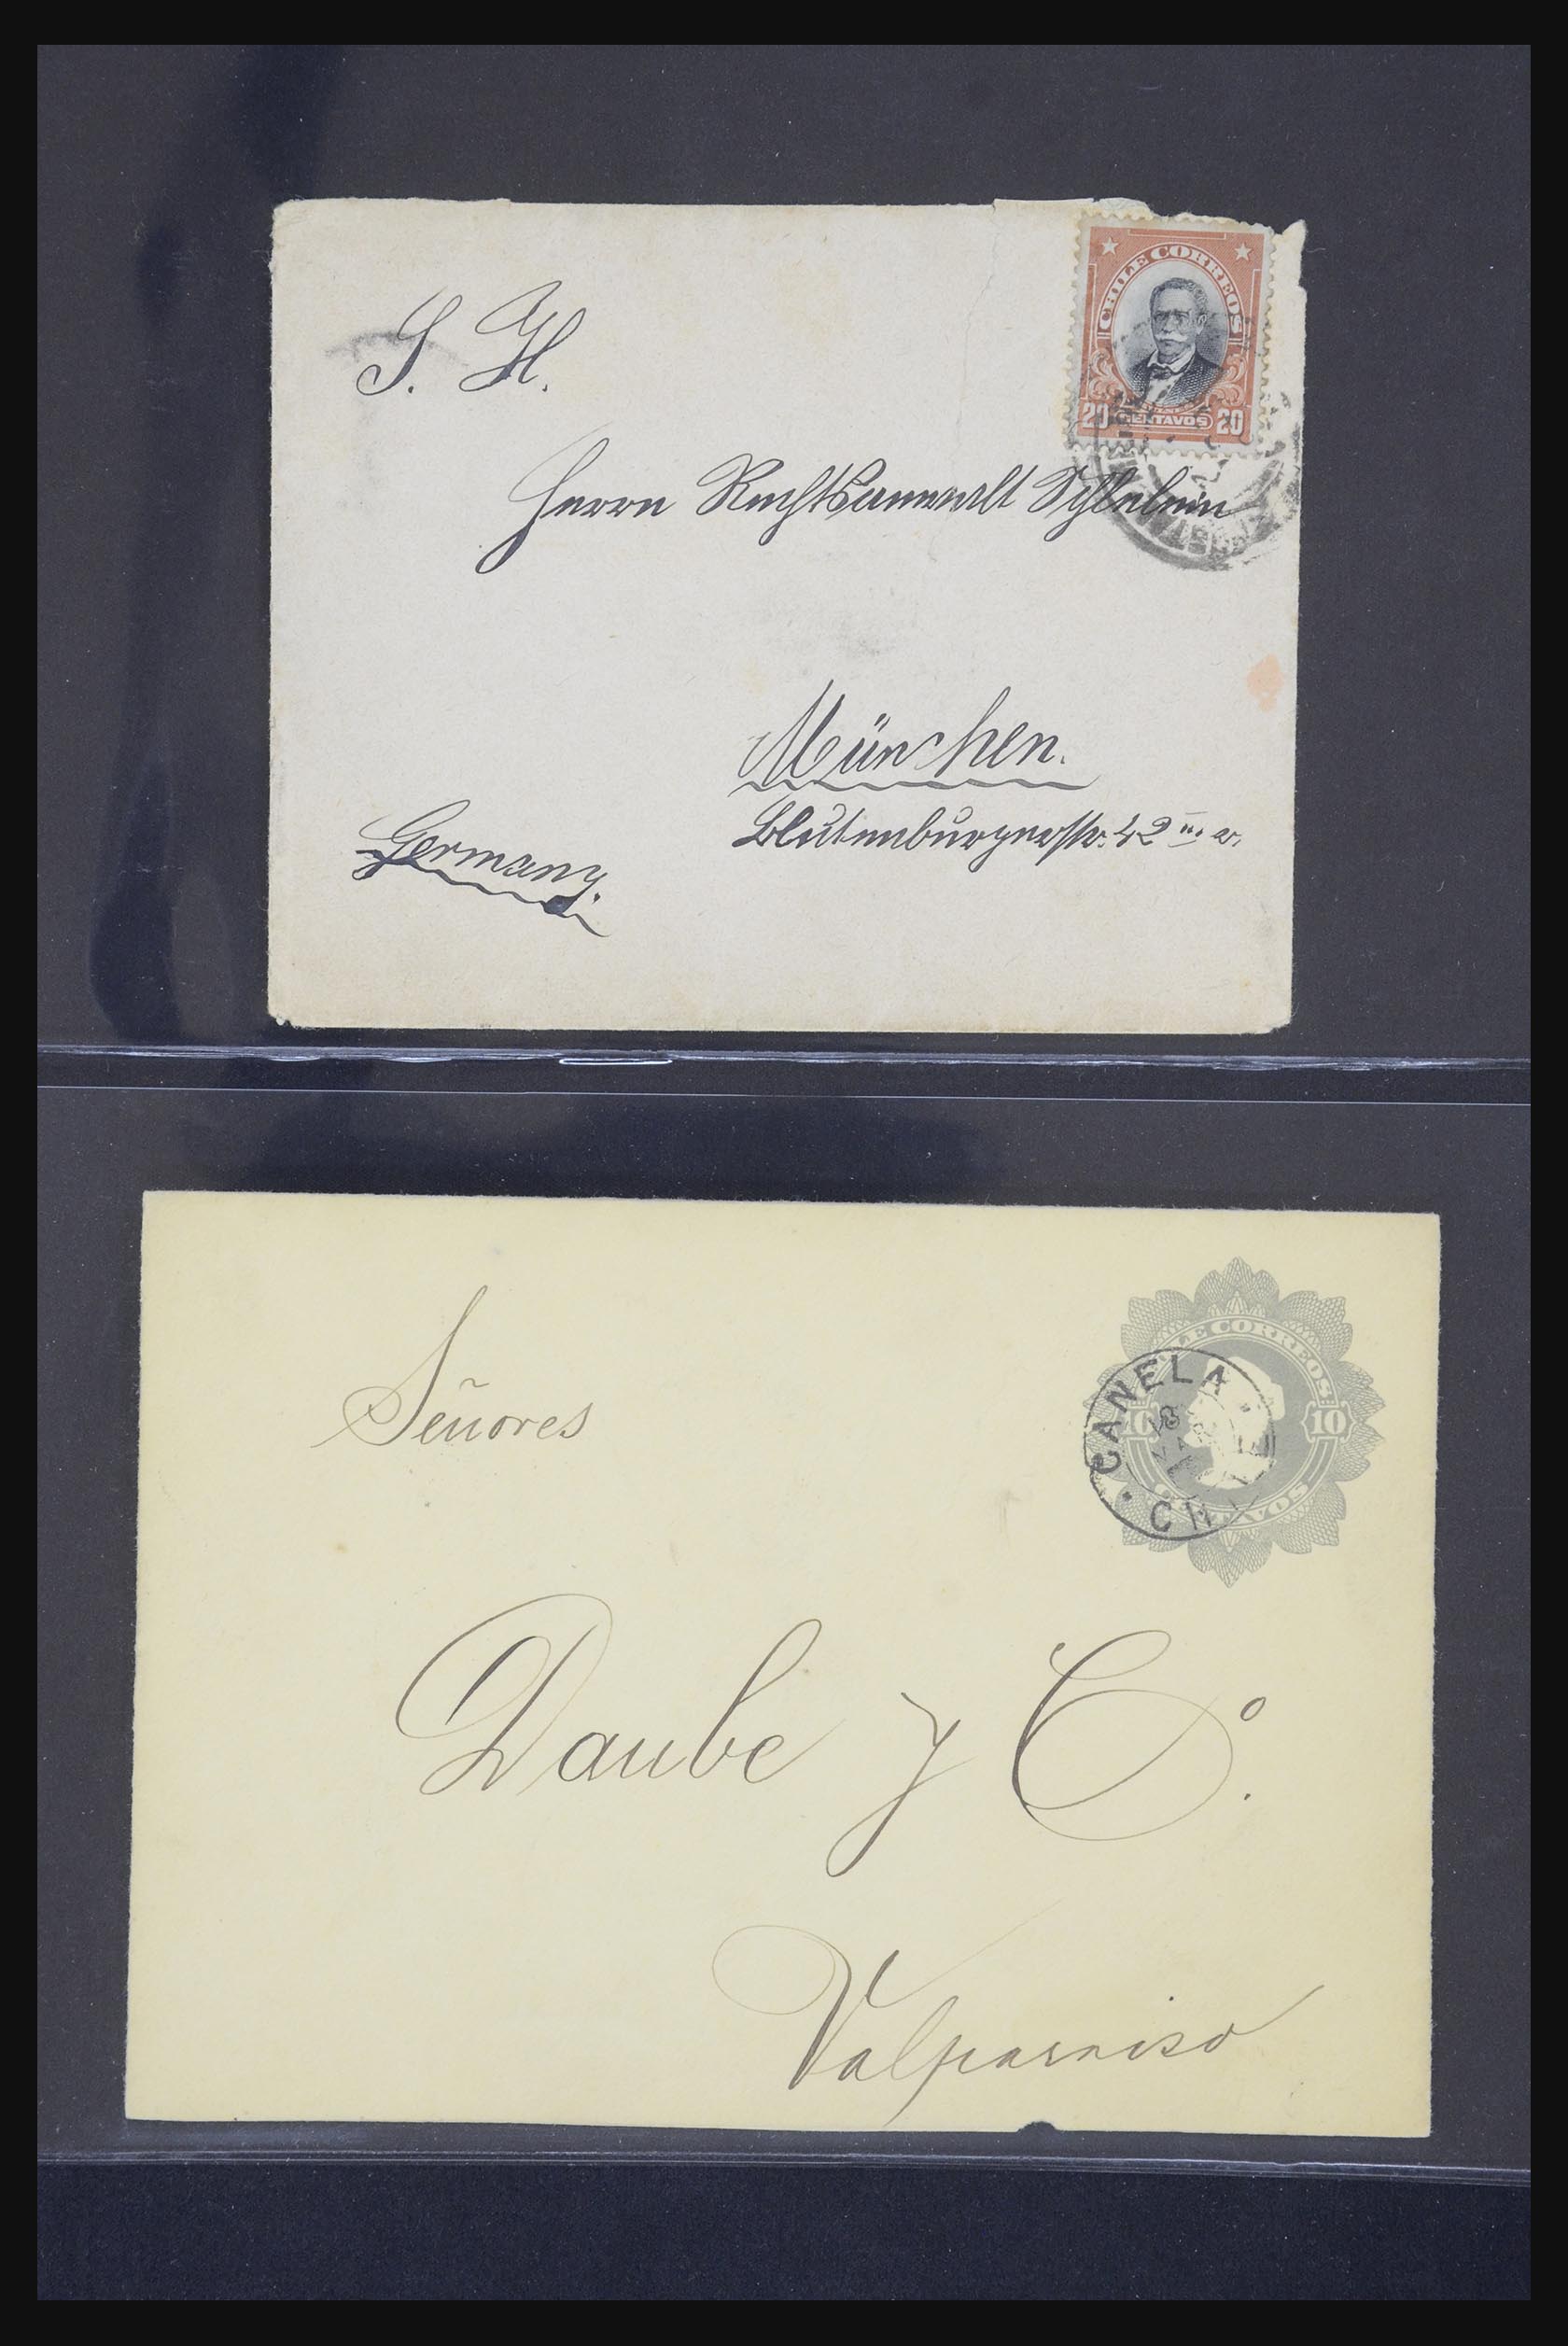 CHILE CORREOS
20 CENTAVOS 20
S. H.
Herrn Rechtsanwalt
München.
Blutenburgerstr. 42 III. r.
Germany.
CHILE CORREOS
10 10
CENTAVOS
CANELA
Señores
Daube y Cº.
Valparaiso